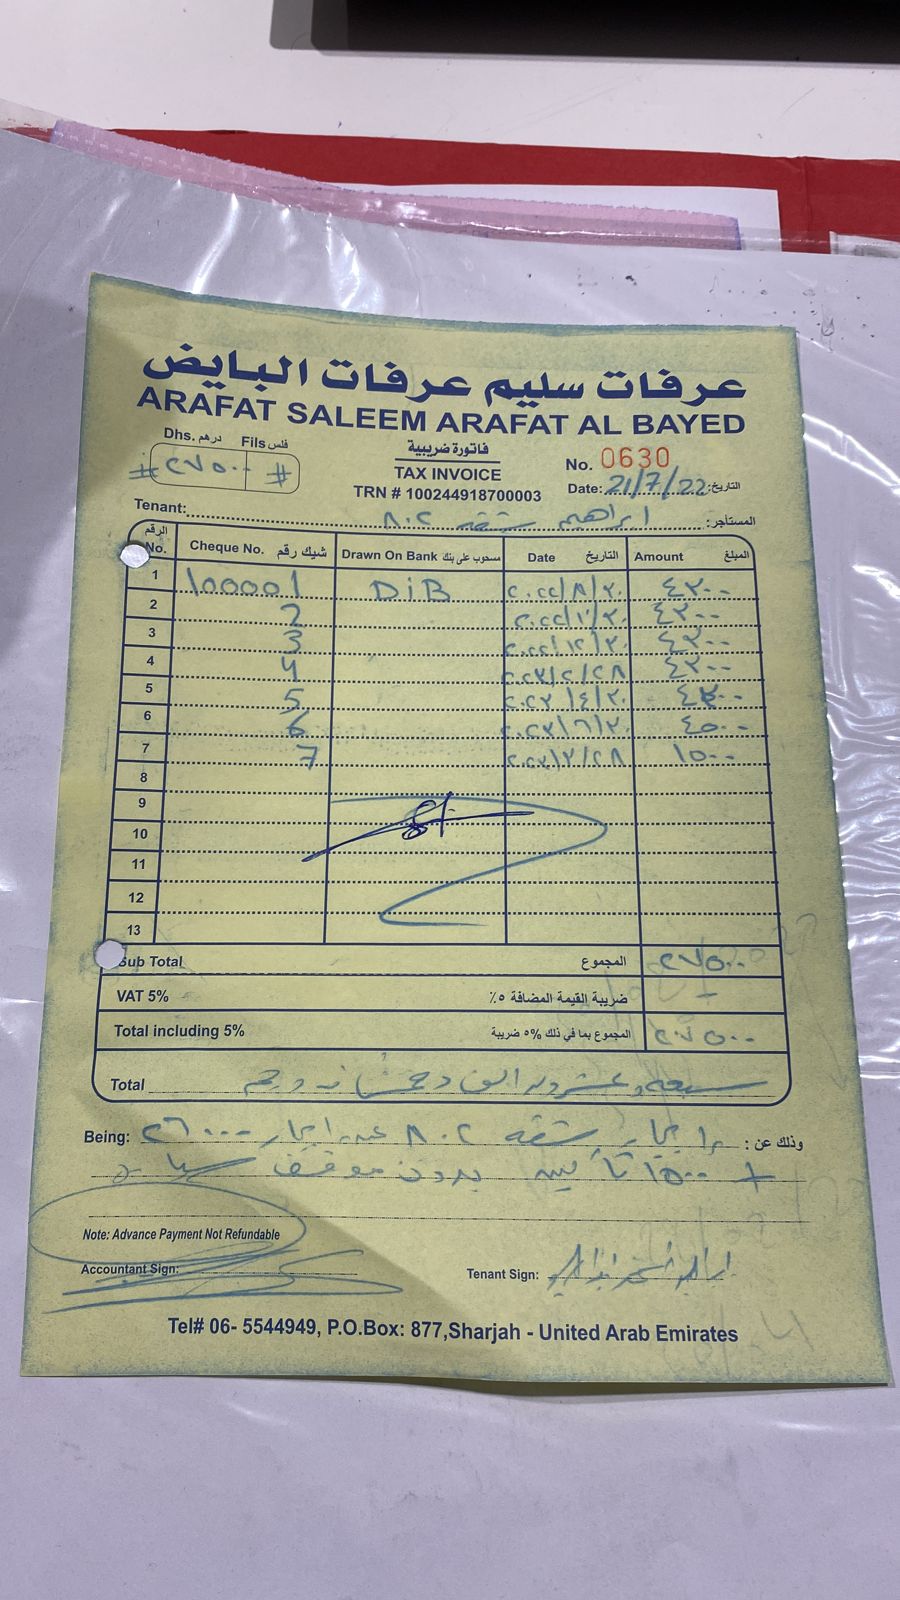 عرفات سليم عرفات البايض
ARAFAT SALEEM ARAFAT AL BAYED
Dhs. درهم Fils فلس
# ٢٧٥٠٠ #
فاتورة ضريبية
TAX INVOICE
TRN # 100244918700003
No. 0630
Date: 21/7/22 التاريخ:
Tenant: ابراهيم شقه ٨٠٢ المستأجر:
الرقم No. Cheque No. شيك رقم Drawn On Bank مسحوب على بنك Date التاريخ Amount المبلغ
1 100001 DiB ٢٠٢٢/٨/٣٠ ٤٣٠٠
2 2 ٢٠٢٢/١٠/٣٠ ٤٣٠٠
3 3 ٢٠٢٢/١٢/٣٠ ٤٣٠٠
4 4 ٢٠٢٣/٢/٢٨ ٤٣٠٠
5 5 ٢٠٢٣/٤/٣٠ ٤٣٠٠
6 6 ٢٠٢٣/٦/٣٠ ٤٥٠٠
7 7 ٢٠٢٣/٢/٢٨ ١٥٠٠
8
9
10
11
12
13
Sub Total المجموع ٢٧٥٠٠
VAT 5% ضريبة القيمة المضافة ٥٪ -
Total including 5% المجموع بما في ذلك ٥% ضريبة ٢٧٥٠٠
Total سبعه وعشرون الف وخمسمائه درهم
Being: ايجار شقه ٨٠٢ عن ايجار ٢٦٠٠٠ وذلك عن:
+ ١٥٠٠ تأمين بدون موقف سياره
Note: Advance Payment Not Refundable
Accountant Sign:
Tenant Sign:
Tel# 06- 5544949, P.O.Box: 877,Sharjah - United Arab Emirates